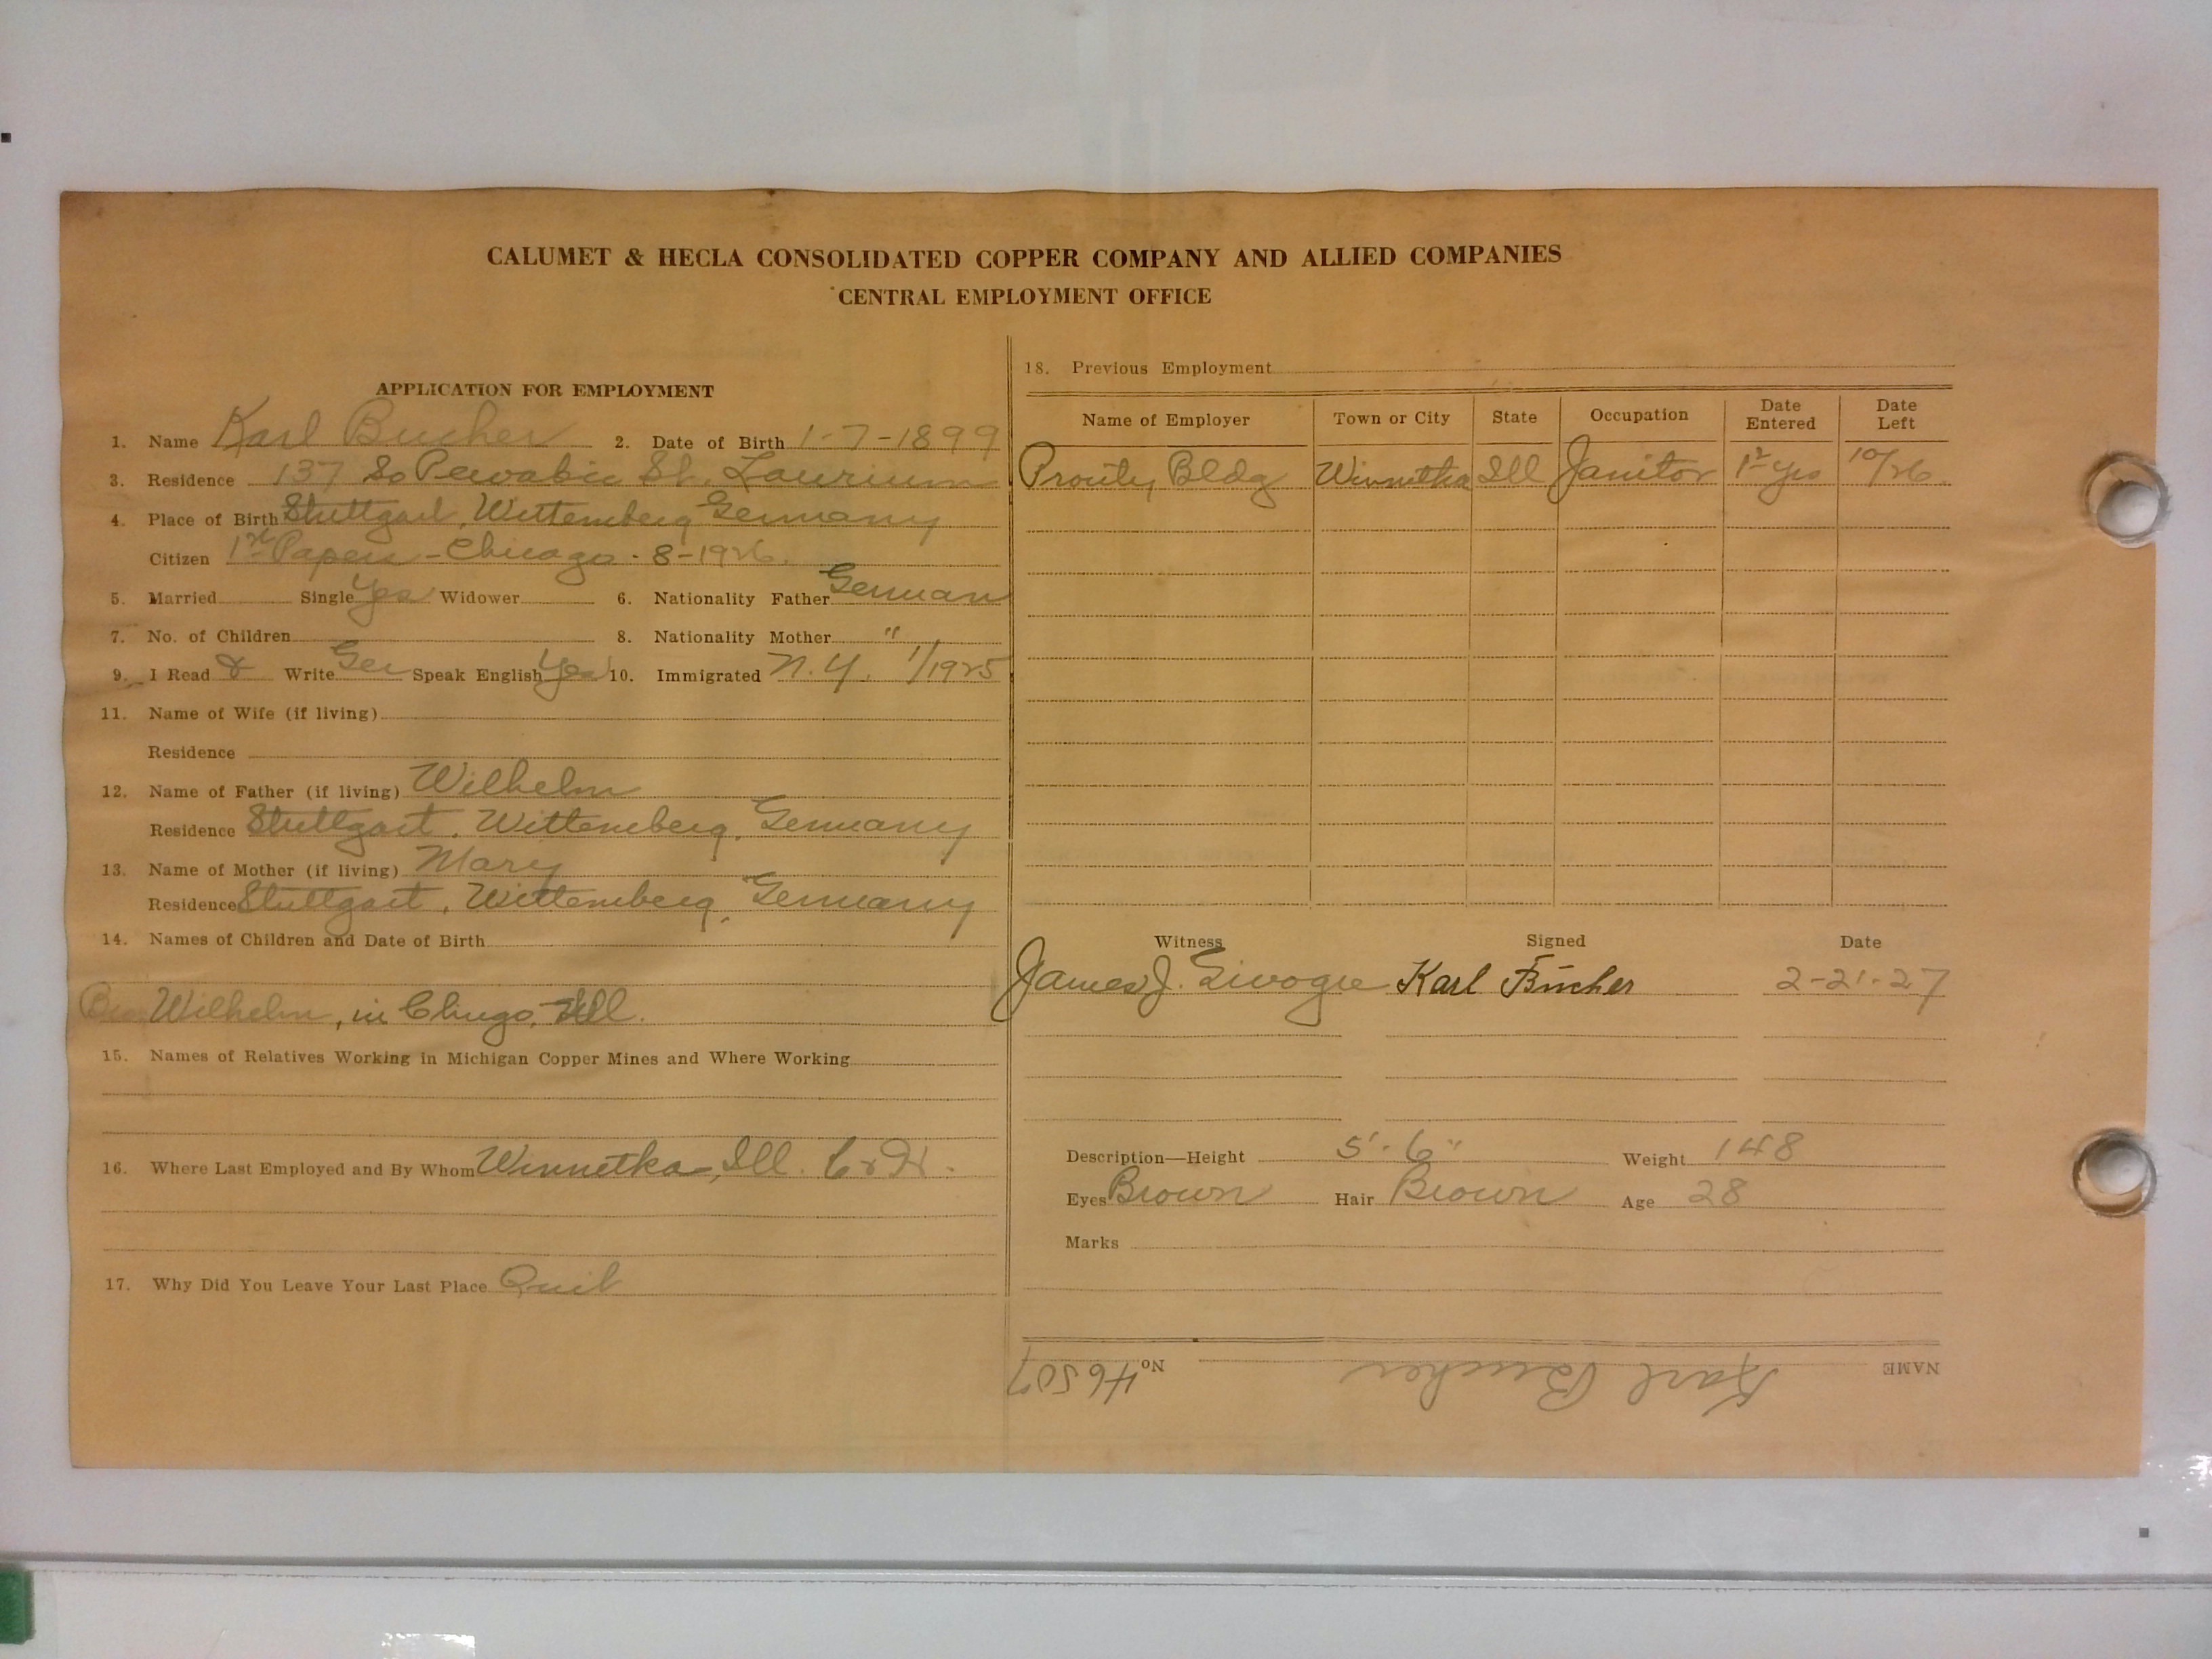 CALUMET & HECLA CONSOLIDATED COPPER COMPANY AND ALLIED COMPANIES
CENTRAL EMPLOYMENT OFFICE
APPLICATION FOR EMPLOYMENT
1. Name Karl Bucher 2. Date of Birth 1-7-1899
3. Residence 137 So Pewabic St. Laurium
4. Place of Birth Stuttgart, Wittemberg Germany
Citizen 1st Papers - Chicago - 8-1926.
5. Married Single Yes Widower 6. Nationality Father German
7. No. of Children 8. Nationality Mother "
9. I Read & Write Ger Speak English Yes 10. Immigrated N.Y. 1/1925
11. Name of Wife (if living)
Residence
12. Name of Father (if living) Wilhelm
Residence Stuttgart, Wittemberg, Germany
13. Name of Mother (if living) Mary
Residence Stuttgart, Wittemberg, Germany
14. Names of Children and Date of Birth
Bro Wilhelm, in Chicago, Ill.
15. Names of Relatives Working in Michigan Copper Mines and Where Working
16. Where Last Employed and By Whom Winnetka, Ill.
17. Why Did You Leave Your Last Place Quit
18. Previous Employment
Name of Employer Town or City State Occupation Date Entered Date Left
Prouty Bldg Winnetka Ill Janitor 10/26.
Witness Signed Date
James J. Karl Bucher 2-21-27
Description—Height 5'-6" Weight 148
Eyes Brown Hair Brown Age 28
Marks
NAME Karl Bucher No. 46507